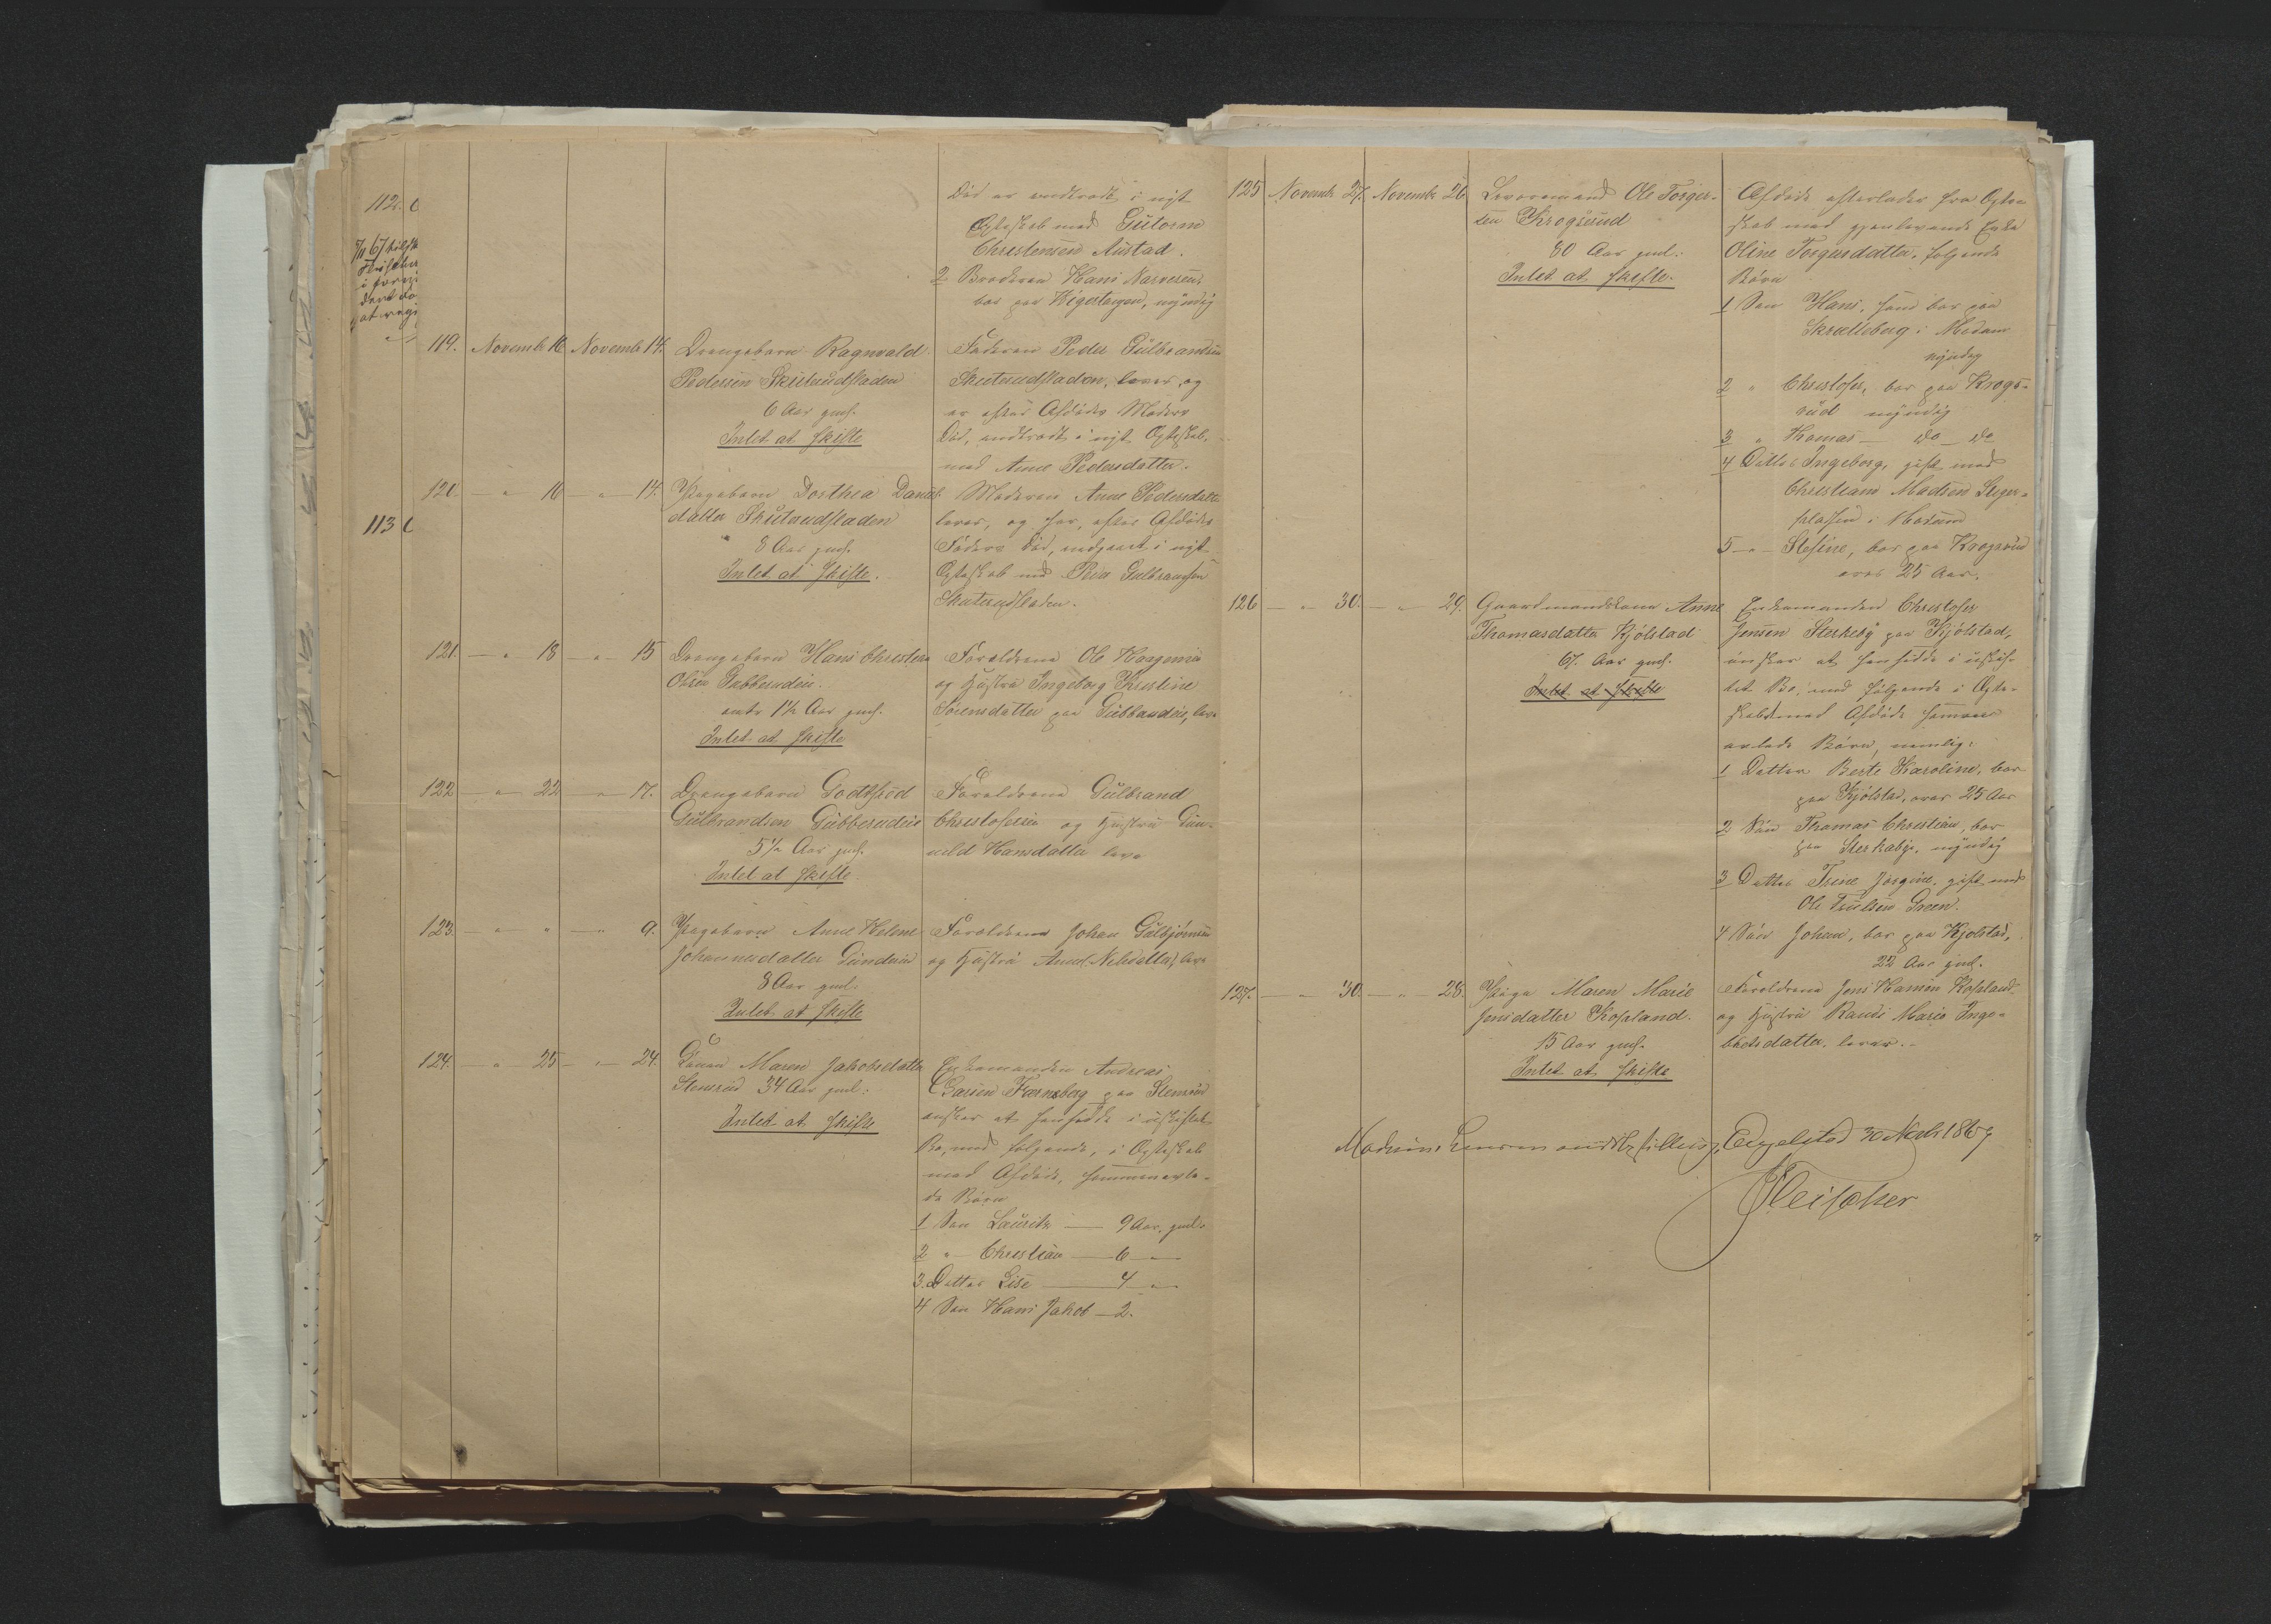 112.
113
Død er indtraadt i nyt
Egteskab med Gulorm
Christensen Austad.
2 Broderen Hans Narvesen,
bor paa Vigerhagen, myndig
119. Novembr 16 Novembr 14. Drengebarn Ragnvald
Pedersen Skuterudstaden
6 Aar gml.
Intet at skifte
Faderen Peder Gulbrandsen
Skuterudstaden, lever, og
er efter Afdødes Moders
Død, indtraadt i nyt Egteskab,
med Anne Pedersdatter.
120. " 16 " 14. Pigebarn Dorthea Daniels-
datter Skuterudstaden
8 Aar gml.
Intet at skifte.
Moderen Anne Pedersdatter
lever, og har, efter Afdødes
Faders Død, indgaaet i nyt
Egteskab med Peder Gulbrandsen
Skuterudstaden.
121. " 18 " 15 Drengebarn Hans Christian
Olsen Gubberudeie.
1½ Aar gml.
Intet at skifte
Forældrene Ole
og Hustru Ingeborg Kirstine
Sørensdatter paa Gubberudeie, lever
122 " 22 " 17. Drengebarn Godtfred
Gulbrandsen Gubberudeie
5½ Aar gml.
Intet at skifte
Forældrene Gulbrand
Christofersen og Hustru Gun-
nild Hansdatter lever
123. " " " 9. Pigebarn Anne Helene
Johannesdatter
8 Aar gml.
Intet at skifte
Forældrene Johan Gulbjørnsen
og Hustru Anne Nilsdatter, lever
124. " 25 " 24. Konen Maren Jakobsdatter
Stensrud 34 Aar gml.
Intet at skifte
Enkemanden Andreas
Larsen Færnsberg paa Stensrud
ønsker at hensidde i uskiftet
Bo, med følgende, i Egteskab
med Afdøde, sammenavle-
de Børn
1 Søn Lauritz — 9 Aar gml.
2 " Christian — 6 "
3. Datter Lise — 4 "
4 Søn Hans Jakob — 2.
125 Novembr 27. Novembr 26. Ole Torger-
sen Krogsrud
80 Aar gml.
Intet at skifte.
Afdøde efterlader fra Egte-
skab med gjenlevende Enke
Oline Torgersdatter, følgende
Børn
1 Søn Hans, som bor paa
Skrælleberg i Modum
myndig
2 " Christofer, bor paa Krogs-
rud myndig
3 " Thomas — do — do
4 Datter Ingeborg, gift med
Christian Madsen Steger-
pladsen i Modum
5 " Stefine, bor paa Krogsrud
over 25 Aar.
126 " 30. " 29. Gaardmandskone Anne
Thomasdatter Kjølstad
67. Aar gml.
Intet at skifte
Enkemanden Christofer
Jensen Sterkeby paa Kjølstad,
ønsker at hensidde i uskif-
tet Bo, med følgende i Egte-
skabet med Afdøde sammen
avlede Børn, nemlig:
1 Datter Berte Karoline, bor
paa Kjølstad, over 25 Aar
2 Søn Thomas Christian, bor
paa Sterkebye, myndig
3 Datter Trine Jørgine, gift med
Ole Trulsen Green.
4 Søn Johan, bor paa Kjølstad,
22 Aar gml.
127. " 30. " 28. Pige Maren Marie
Jensdatter Kopland.
15 Aar gml.
Intet at skifte
Forældrene Jens Hansen Kopland
og Hustru Randi Marie Inge-
bretsdatter, lever.
Modums Lensmandsbestilling, 30 Novbr 1867
Fleischer